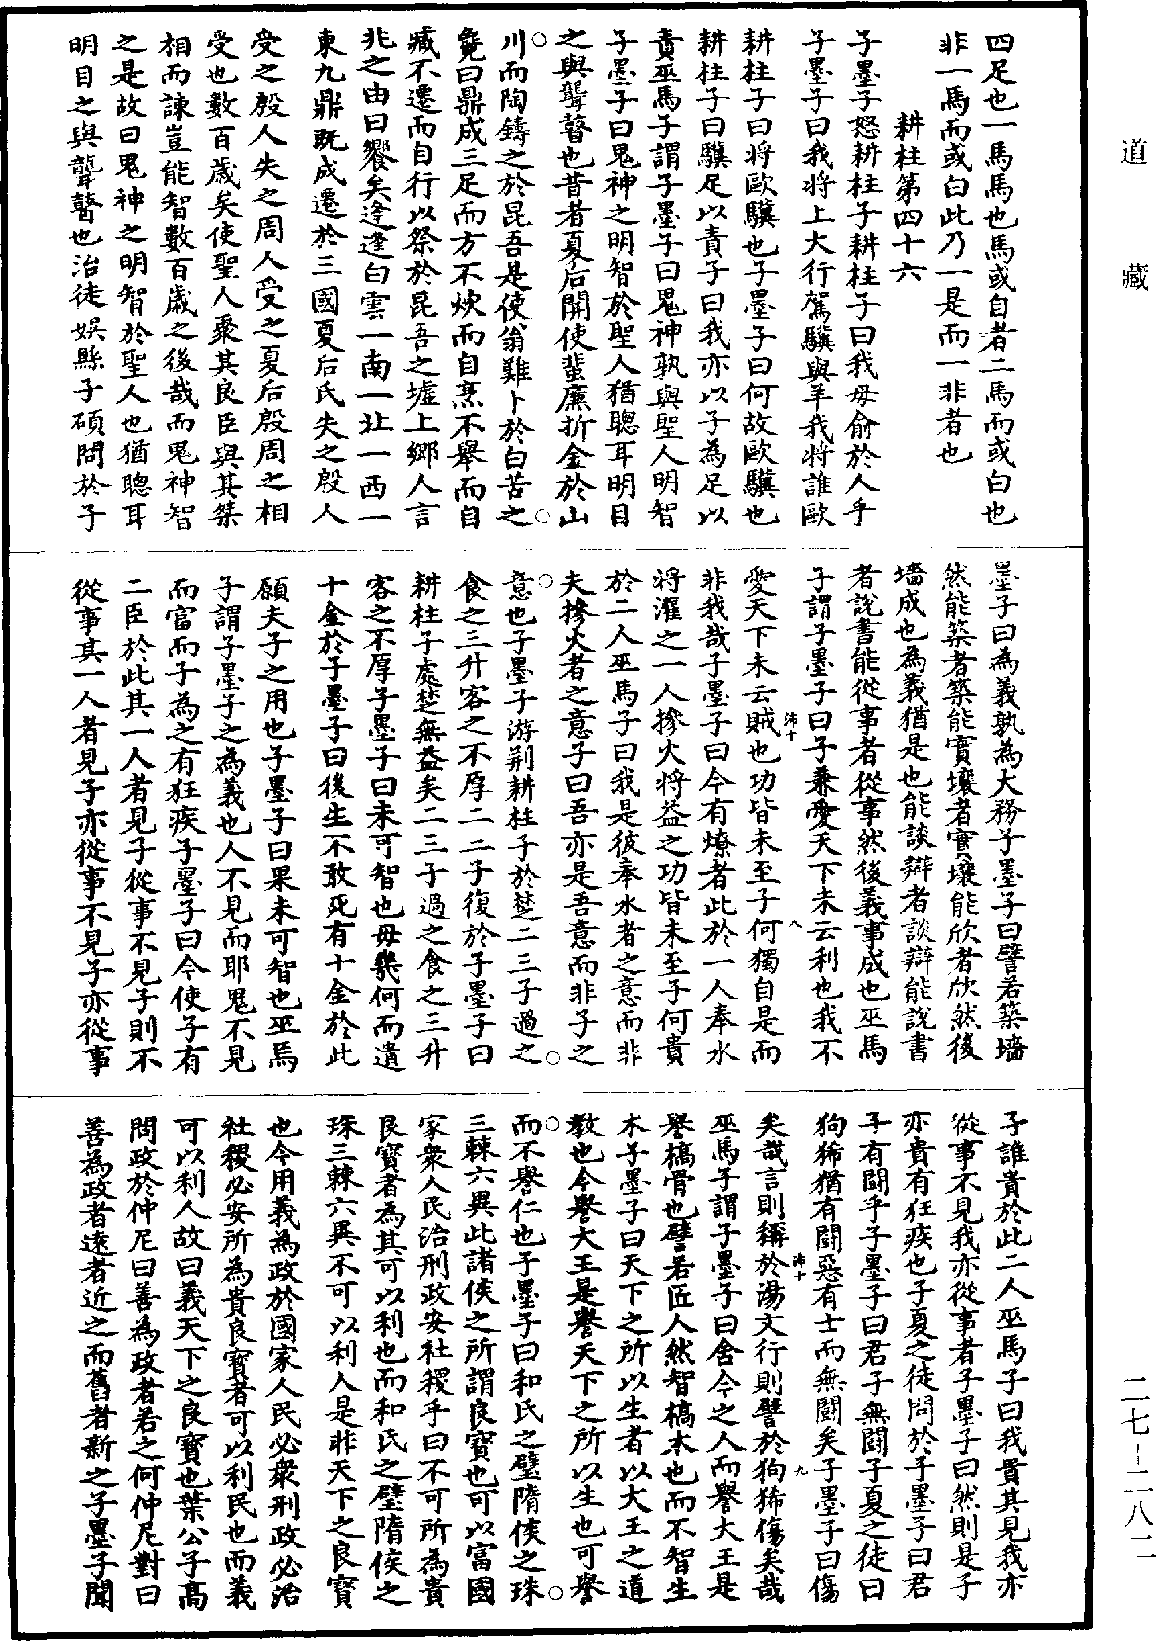 道藏
四足也一馬馬也馬或自者二馬而或白也
非一馬而或白此乃一是而一非者也
耕柱第四十六
子墨子怒耕柱子耕柱子曰我毋俞於人乎
子墨子曰我將上大行駕驥與羊我將誰歐
耕柱子曰將歐驥也子墨子曰何故歐驥也
耕柱子曰驥足以責子曰我亦以子為足以
責巫馬子謂子墨子曰鬼神孰與聖人明智
子墨子曰鬼神之明智於聖人猶聰耳明目
之與聾瞽也昔者夏后開使蜚廉折金於山
川而陶鑄之於昆吾是使翁難卜於白苦之
龜曰鼎成三足而方不炊而自烹不舉而自
臧不遷而自行以祭於昆吾之墟上鄉人言
兆之由曰饗矣逢逢白雲一南一北一西一
東九鼎既成遷於三國夏后氏失之殷人
受之殷人失之周人受之夏后殷周之相
受也數百歲矣使聖人聚其良臣與其桀
相而諫豈能智數百歲之後哉而鬼神智
之是故曰鬼神之明智於聖人也猶聰耳
明目之與聾瞽也治徒娛縣子碩問於子
墨子曰為義孰為大務子墨子曰譬若築墻
然能築者築能實壤者實壤能欣者欣然後
墻成也為義猶是也能談辯者談辯能說書
者說書能從事者從事然後義事成也巫馬
子謂子墨子曰子兼愛天下未云利也我不
沛十
八
愛天下未云賊也功皆未至子何獨自是而
非我哉子墨子曰今有燎者此於一人奉水
將灌之一人摻火將益之功皆未至子何貴
於二人巫馬子曰我是彼奉水者之意而非
夫摻火者之意子曰吾亦是吾意而非子之
意也子墨子游荊耕柱子於楚二三子過之
食之三升客之不厚二二子復於子墨子曰
耕柱子處楚無益矣二三子過之食之三升
客之不厚子墨子曰未可智也毋幾何而遺
十金於子墨子曰後生不敢死有十金於此
願夫子之用也子墨子曰果未可智也巫馬
子謂子墨子之為義也人不見而耶鬼不見
而富而子為之有狂疾子墨子曰今使子有
二臣於此其一人者見子從事不見子則不
從事其一人者見子亦從事不見子亦從事
子誰貴於此二人巫馬子曰我貴其見我亦
從事不見我亦從事者子墨子曰然則是子
亦貴有狂疾也子夏之徒問於子墨子曰君
子有鬪乎子墨子曰君子無鬪子夏之徒曰
狗狶猶有鬪惡有士而無鬪矣子墨子曰傷
沛十
九
矣哉言則稱於湯文行則譬於狗狶傷矣哉
巫馬子謂子墨子曰舍今之人而譽大王是
譽槁骨也譬若匠人然智槁木也而不智生
木子墨子曰天下之所以生者以大王之道
教也今譽大王是譽天下之所以生也可譽
而不譽仁也子墨子曰和氏之璧隋侯之珠
三棘六異此諸侯之所謂良寶也可以富國
家衆人民治刑政安社稷乎曰不可所為貴
良寶者為其可以利也而和氏之璧隋侯之
珠三棘六異不可以利人是非天下之良寶
也今用義為政於國家人民必衆刑政必治
社稷必安所為貴良寶者可以利民也而義
可以利人故曰義天下之良寶也葉公子高
問政於仲尼曰善為政者若之何仲尼對曰
善為政者遠者近之而舊者新之子墨子聞
二七-二八二